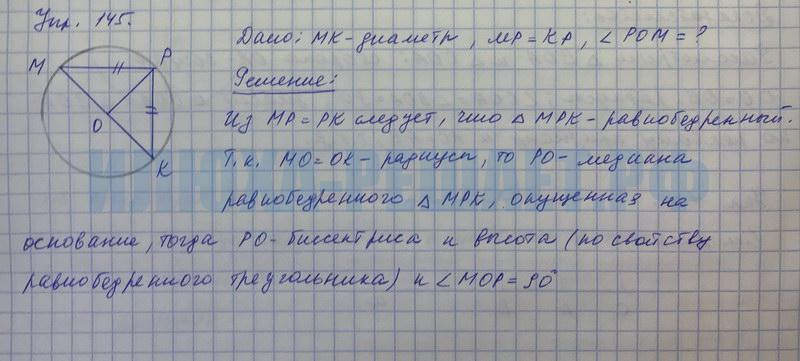 Упр. 145.
Дано: МК-диаметр, МР=КР, ∠РОМ=?
Решение:
Из МР=РК следует, что △МРК-равнобедренный.
Т.к. МО=ОК-радиусы, то РО-медиана
равнобедренного △МРК, опущенная на
основание, тогда РО-биссектриса и высота (по свойству
равнобедренного треугольника) и ∠МОР=90°
М
Р
О
К